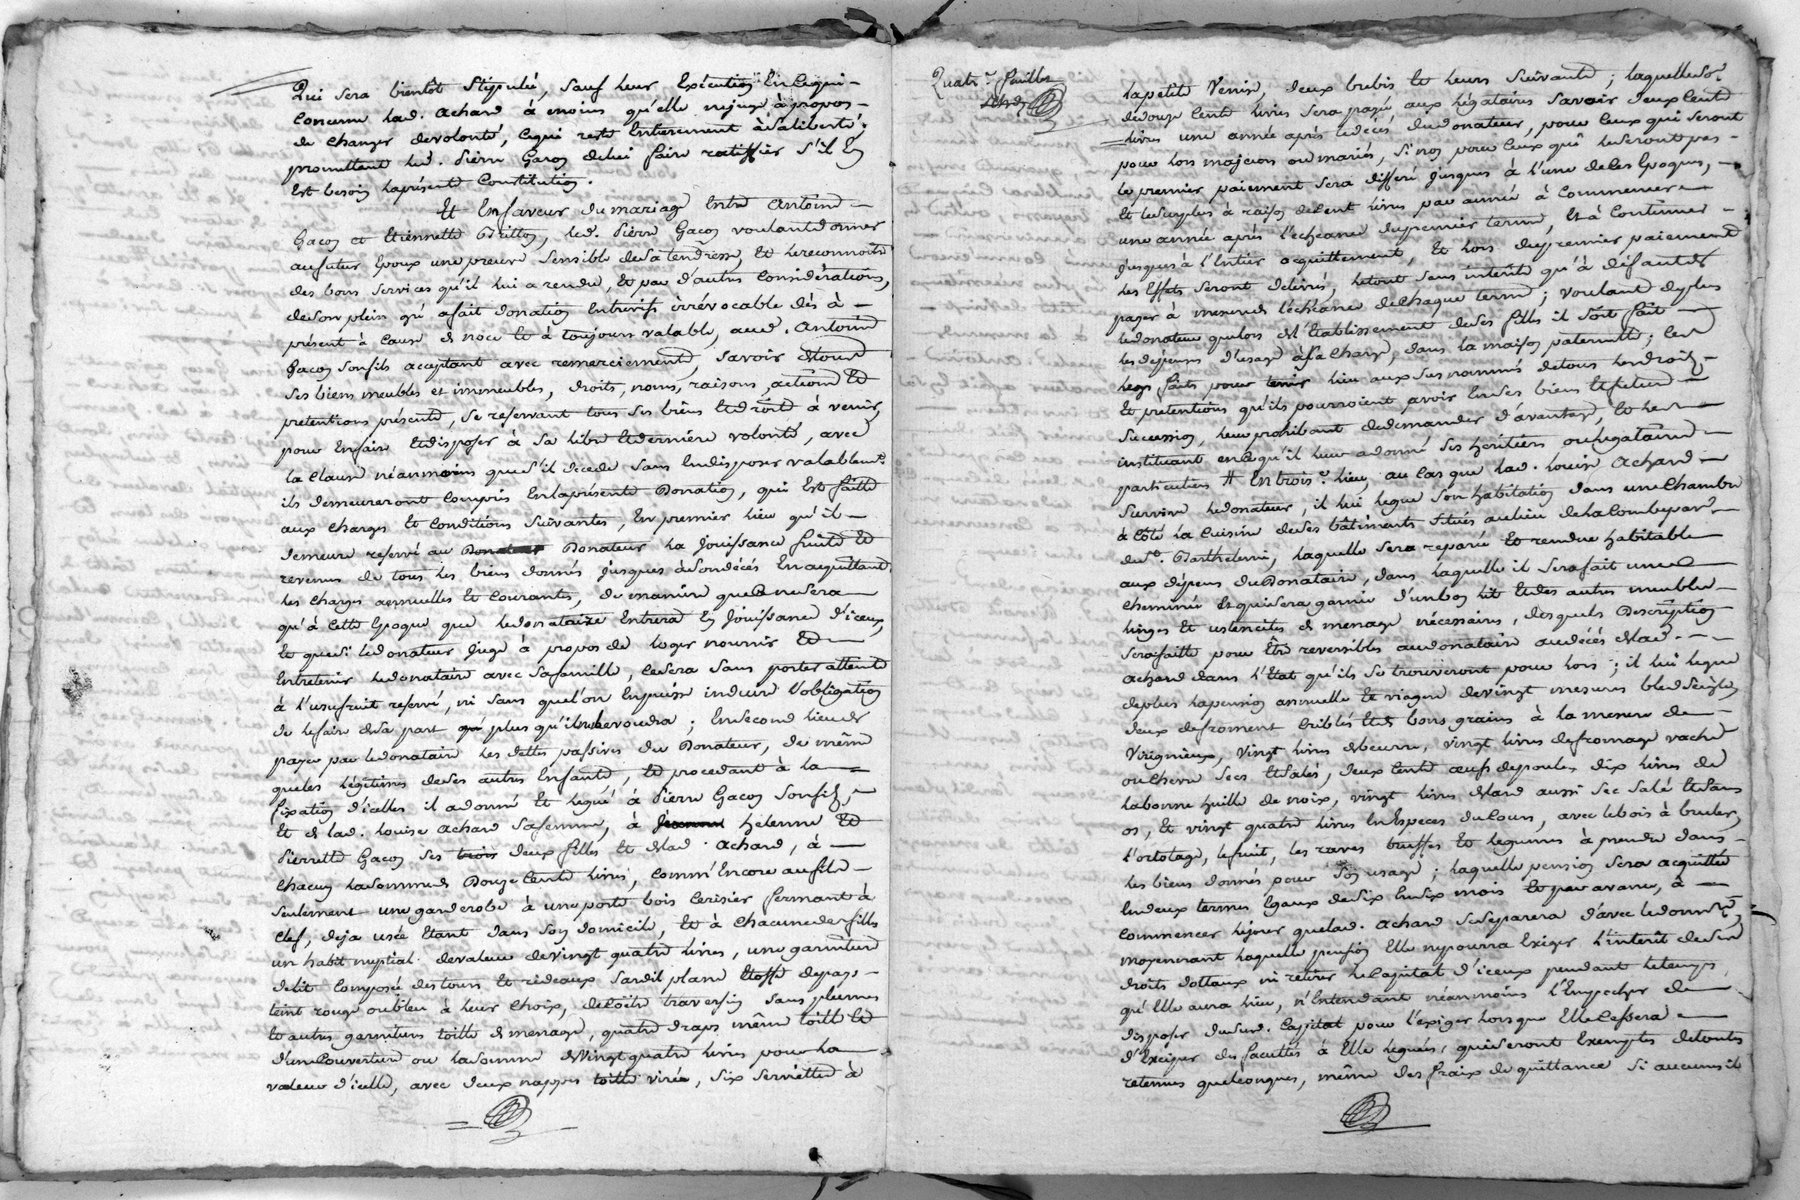 Qui sera bientôt Stipulé, sauf leur Exécution En Cequi-
Concerne lad. Achard à moins qu'elle nejuge àpropos-
de changer devolonté, Cequi reste Entierement àsaliberté;
promettant led. Pierre Gacon delui faire ratiffier s'il En
Est besoin laprésente Constitution.
Et Enfaveur dumariage Entre Antoine-
Gacon et Etiennette Brillon, led. Pierre Gacon voulantdonner
aufutur Epoux une preuve sensible desa tendresse, Et lereconnoitre
des bons services qu'il lui a rendu, Et par d'autres Considérations,
deson plein gré afait donation Entrevifs irrévocable dès à-
présent à Cause de noce Et à toujours valable, aud. Antoine
Gacon sonfils acceptant avec remerciement, savoir detous
Ses biens meubles et immeubles, droits, noms, raisons, actions Et
pretentions présents, Se reservant tous ses biens Etdroits à venir,
pour Enfaire Etdisposer à Sa libre Etdernière volonté, avec
la Clause néanmoins ques'il decede sans Endisposer valablemt.
ils demeureront Compris Enlaprésente Donation, qui Est faitte
aux Charges Et Conditions Suivantes, En premier lieu qu'il-
demeure reservé au Donateur la Jouissance fruits Et
revenus de tous les biens donnés jusques àsondécès Enacquittant
les Charges annuelles Et Courantes, de maniere que Ce nesera
qu'à Cette Epoque que ledonataire Entrera En Jouissance d'iceux,
Et quesi ledonateur juge à propos de loger nourrir Et
Entretenir ledonataire avec safamille, Cesera sans porter atteinte
à l'usufruit reservé, ni sans quel'on Enpuisse induire l'obligation
de lefaire desa part plus qu'il nelevoudra; Ensecond lieu de
payer par ledonataire les dettes passives du Donateur, de même
queles légitimes deses autres Enfants, Et procedant à la
fixation d'icelles il adonné Et legué à Pierre Gacon Sonfils,
Et de lad. Louise Achard safemme, à helenne Et
Pierrette Gacon ses trois deux filles Et delad. Achard, à
Chacun lasomme de Douze Cents livres, Comm'Encore aufils
Seulement une garderobe à une porte bois Cerisier fermant à
Clef, deja usée Etant dans son domicile, Et à Chacune desfilles
un habit nuptial devaleur devingt quatre livres, une garniture
delit Composée des tours Et rideaux sardil plane Etoffe depays-
teint rouge oubleu à leur Choix, deCoitre traversin sans plumes
Et autres garnitures toille de menage, quatre draps même toille Et
d'une Couverture ou lasomme deVingt quatre livres pour la
valeur d'icelle, avec deux nappes toille virée, six serviettes à
Quatre. feuillet
lapetite Venise, deux brebis Et leurs suivants; laquelle so.e
dedouze Cents livres sera payée aux legataires Savoir deuxCents
livres une année après ledecès dudonateur, pour Ceux qui seront
pour lors majeurs oumariés, Si non pour Ceux qui neleserontpas-
le premier paiement sera differé jusques à l'une deCes Epoques,
Et lesurplus à raison deCent livres par année à Commencer
une année après l'echeance dupremier terme, Et à Continuer-
jusques à l'Entier acquittement, Et lors dupremier paiement
les Effets seront delivrés, letout sans interêts qu'à défaut de
payer à mesure de l'echéance deChaque terme; voulant deplus
ledonateur quelors de l'Etablissement deses filles il soit fait
les depenses d'usage à sa Charge, dans la maison paternelle; Ces
legs faits pour tenir lieu aux susnommés detous les droits-
Et pretentions qu'ils pourroient avoir Enses biens Etfuture
Succession, leur prohibant dedemander d'avantage, Et les
instituant en Ce qu'il leur adonné ses héritiers oulegataires
particuliers # Entrois.e lieu, au Cas que lad. Louise Achard-
Survive ledonateur, il lui legue son habitation dans uneChambre
à Côté la Cuisine deses bâtiments situés aulieu de
de St. Barthelemi, laquelle sera reparée Et rendue habitable
aux dépens duDonataire, dans laquelle il serafait une
Cheminée Et quisera garnie d'unbon lit Etdes autres meubles-
linges Et ustenciles de menage nécessaires, desquels Description
serafaitte pour Être reversibles audonataire audécès delad.
Achard dans l'Etat qu'ils se trouveront pour lors; il lui legue
deplus lapension annuelle Et viagere devingt mesures bled seigle,
deux defroment Criblés Etde bons grains à la mesure de
Virignieux, Vingt livres debeurre, vingt livres defromage vache
ouChevre secs Etsalés, deux Cents oeufs depoules, dix livres de
labonne huille de noix, vingt livres delard aussi sec salé Etsans
os, Et vingt quatre livres En Especes duCours, avec lebois à bruler,
l'ortolage, lefruit, les raves truffes Et legumes à prendre dans-
les biens donnés pour son usage; laquelle pension sera acquittée
Endeux termes Egaux desix Ensix mois Et par avance, à
Commencer lejour quelad. Achard sesèparera d'avec ledonatre,
moyennant laquelle pension Elle nepourra Exiger l'interêt deses
droits dottaux ni retirer leCapital d'iceux pendant letemps
qu'Elle aura lieu, n'Entendant néanmoins l'Empecher de
disposer dususd. Capital pour l'exiger lorsque Elle Cessera
d'Exiger des facultés à Elle leguées, quiseront Exemptes detoutes
retenues quelconques, même des fraix de quittance Si aucunes il